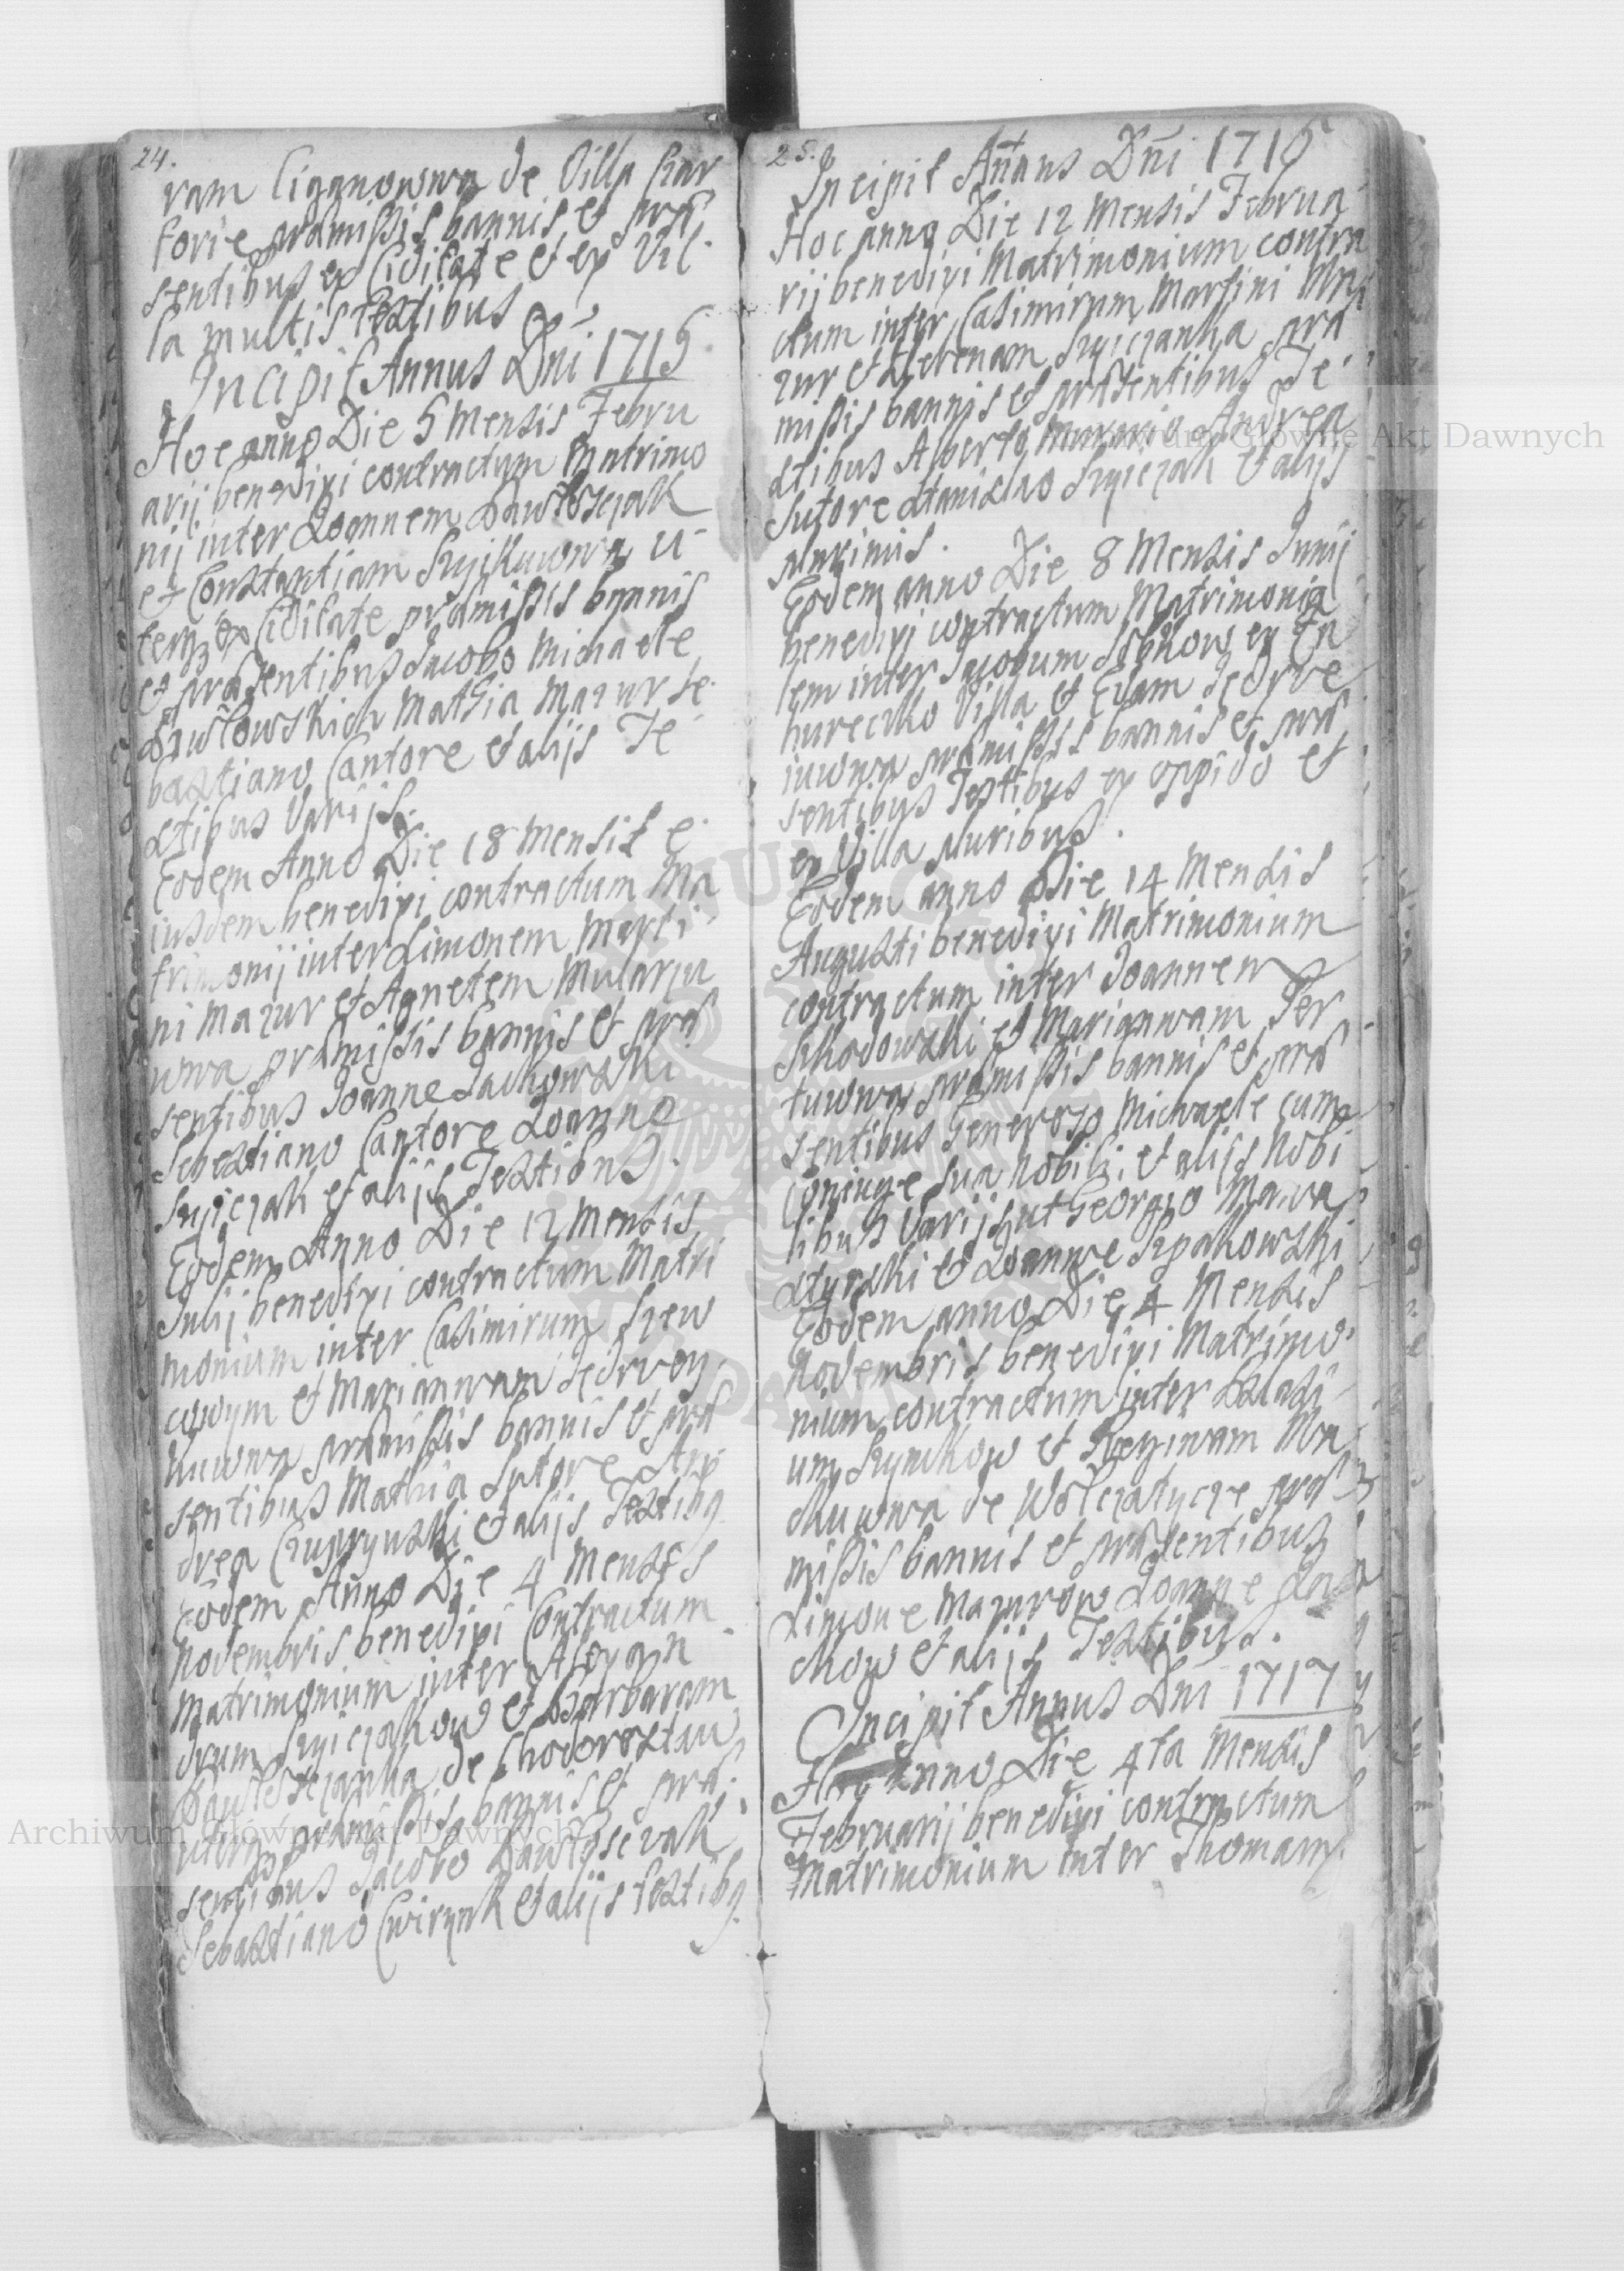 24.
ram Ciganowna de Villa Czar
torie præmissis bannis et præ
sentibus ex Civitate et ex Vil
la multis testibus
Incipit Annus Dni 1715
Hoc anno Die 5 Mensis Febru
arij benedixi contractum matrimo
nij inter Joannem Pawłoszczak
et Constantiam Szyikuwna u
ex Civitate præmissis bannis
et præsentibus Jacobo Michaele
Pawłowskich Mathia Mazur Se
bastiano Cantore et alijs Te
stibus Varijs.
Eodem Anno Die 18 Mensis e
iusdem benedixi contractum Ma
trimonij inter Simonem Marti
ni Mazur et Agnetem Mularzu
wna præmissis bannis et præ
sentibus Joanne Jackowski
Sebestiano Cantore Joanne
Szyiczak et alijs Testibus.
Eodem Anno Die 12 Mensis
Julij benedixi contractum Matri
monium inter Casimirum Szew
cowym et Mariannam Fedrvoy
kuwna præmissis bannis et præ
sentibus Mathia Sutore An
drea Czuprynski et alijs Testibq
Eodem Anno Die 4 Mensis
Novembris benedixi Contractum
matrimonium inter Alexan
drum Szyiczakow et Barbaram
de Chodorostaw
præmissis bannis et præ
sentibus Jacobo
Sebastiano Cwirzynk et alijs testibq
25.
Incipit Annus Dni 1716
Hoc anno Die 12 Mensis Februa
rij benedixi Matrimonium contra
ctum inter Casimirum Martini Ma
zur et Helenam Szyiczanka præ
missis bannis et præsentibus Te
stibus Alberto Murario Andrea
Sutore Stanislao Szyiczak et alijs
plurimis.
Eodem anno Die 8 Mensis Junij
benedixi contractum Matrimonia
lem inter Jacobum ex Za
hureczko Villa et Evam Fedrve
iuwna præmissis bannis et præ
sentibus Testibus ex oppido et
ex Villa pluribus.
Eodem anno Die 14 Mensis
Augusti benedixi Matrimonium
contractum inter Joannem
Szkodowski et Mariannam Fer
tuwna præmissis bannis et præ
sentibus Generoso Michaele cum
Coniuge sua Nobili, et alijs Nobi
libus Varijs ut Georgio Mana
styrski et Joanne Szpakowski
Eodem anno Die 4 Mensis
Novembris benedixi Matrimo
nium contractum inter Stasi
um Szymkow et Reginam Ma
ckuwna de Wołczatycze præ
missis bannis et præsentibus
Simone Mazurow Joanne
ckow et alijs Testibus.
Incipit Annus Dni 1717
Hoc anno Die 4ta Mensis
Februarij benedixi contractum
Matrimonium inter Thomam
Archiwum Główne Akt Dawnych
Archiwum Główne Akt Dawnych